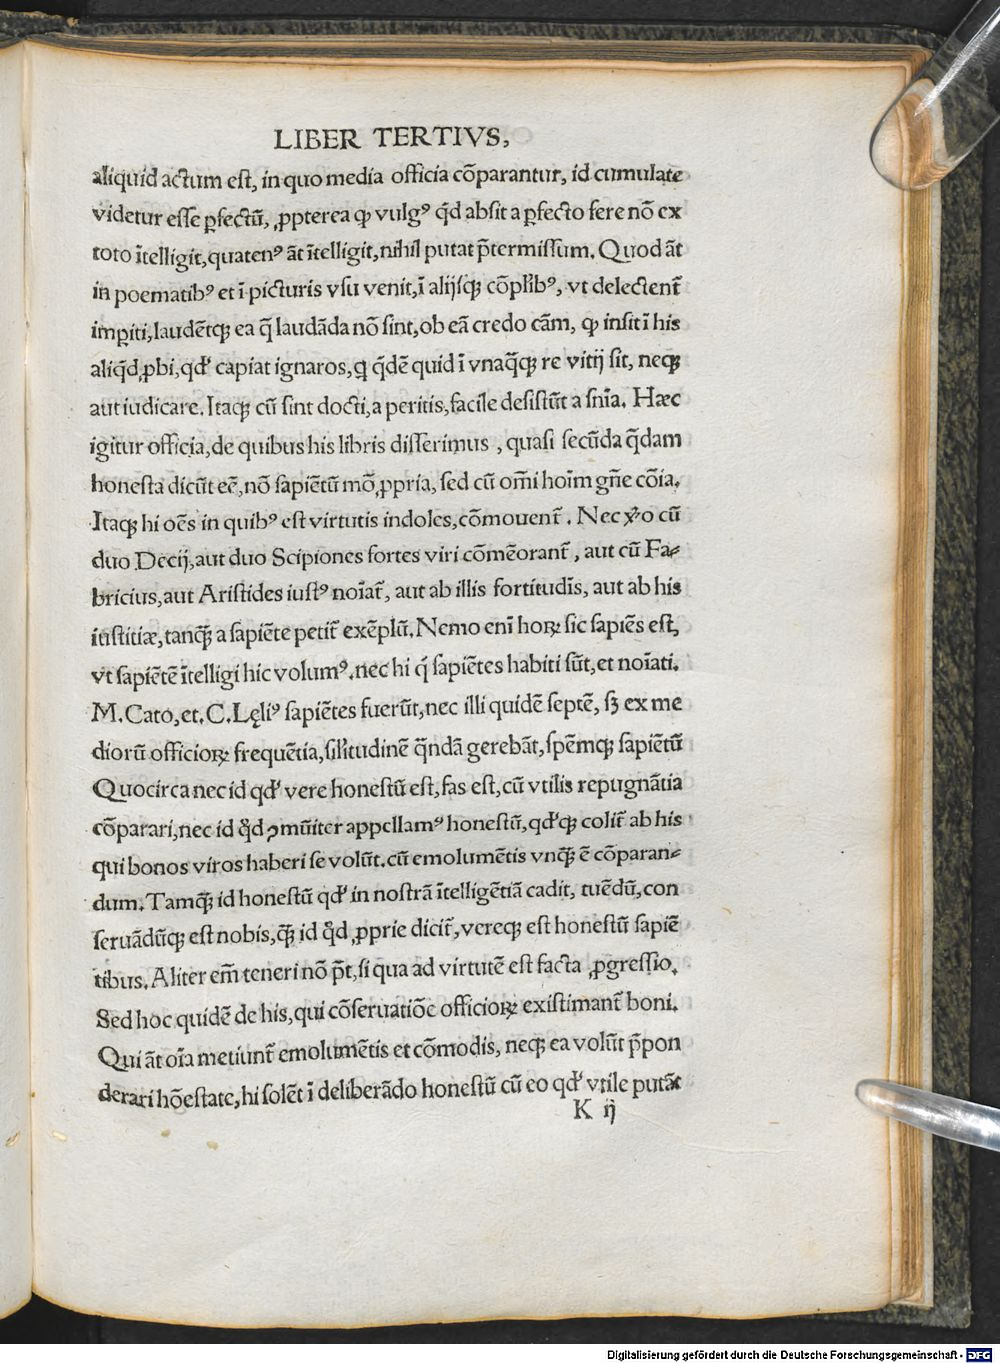 LIBER TERTIVS,
aliquid actum est, in quo media officia cōparantur, id cumulate
videtur esse ꝑfectū, ꝓpterea ꝙ vulgꝰ qd̄ absit a ꝑfecto fere nō ex
toto ītelligit, quatenꝰ āt ītelligit, nihil putat p̄termissum. Quod āt
in poematibꝰ et ī picturis vsu venit, ī alijsqꝫ cōpl̄ibꝰ, vt delectent᷑
imꝑiti, laudētqꝫ ea q̄ laudāda nō sint, ob eā credo cām, ꝙ insit ī his
aliqd̄ ꝓbi, qd' capiat ignaros, q qd̄ē quid ī vnaq̄qꝫ re vitij sit, neqꝫ
aut iudicare. Itaqꝫ cū sint docti, a peritis, facile desistūt a snīa. Hæc
igitur officia, de quibus his libris disserimus, quasi secūda q̄dam
honesta dicūt eē, nō sapiētū mō ꝓpria, sed cū om̄i hoīm gn̄e cōia.
Itaqꝫ hi oēs in quibꝰ est virtutis indoles, cōmouent᷑. Nec ꝟo cū
duo Decij, aut duo Scipiones fortes viri cōmēorant᷑, aut cū Fa⸗
bricius, aut Aristides iustꝰ noīat᷑, aut ab illis fortitudīs, aut ab his
iustitiæ, tanqꝫ̄ a sapiēte petit᷑ exēplū. Nemo enī hoꝝ sic sapiēs est,
vt sapiētē ītelligi hic volumꝰ. nec hi q́ sapiētes habiti sūt, et noīati.
M. Cato, et. C. Lęliꝰ sapiētes fuerūt, nec illi quidē septē, sꝫ ex me
diorū officioꝝ frequētia, sil̄itudinē q̄ndā gerebāt, spēmqꝫ sapiētū
Quocirca nec id qd' vere honestū est, fas est, cū vtilis repugnātia
cōparari, nec id qͦd ꝯmūiter appellamꝰ honestū, qd'qꝫ colit᷑ ab his
qui bonos viros haberi se volūt. cū emolumētis vnqꝫ̄ ē cōparan⸗
dum. Tamqꝫ̄ id honestū qd' in nostrā ītelligētiā cadit, tuēdū, con
seruādūqꝫ est nobis, qꝫ̄ id qͦd ꝓprie dicit᷑, vereqꝫ est honestū sapiē
tibus. Aliter em̄ teneri nō p̄t, si qua ad virtutē est facta ꝓgressio.
Sed hoc quidē de his, qui cōseruatiōe officioꝝ existimant᷑ boni.
Qui āt oīa metiunt᷑ emolumētis et cōmodis, neqꝫ ea volūt p̄pon
derari hōestate, hi solēt ī deliberādo honestū cū eo qd' vtile putāt
K ij
Digitalisierung gefördert durch die Deutsche Forschungsgemeinschaft - DFG